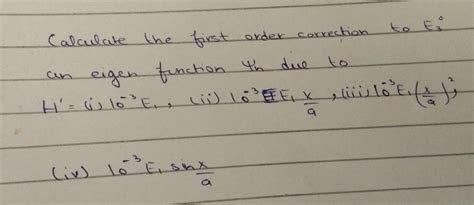 Calculate the first order correction to E₃⁰
an eigen function ψn due to
H' = (i) 10⁻³E₁, (ii) 10⁻³E₁ x/a, (iii) 10⁻³E₁(x/a)²,
(iv) 10⁻³E₁ sin x/a